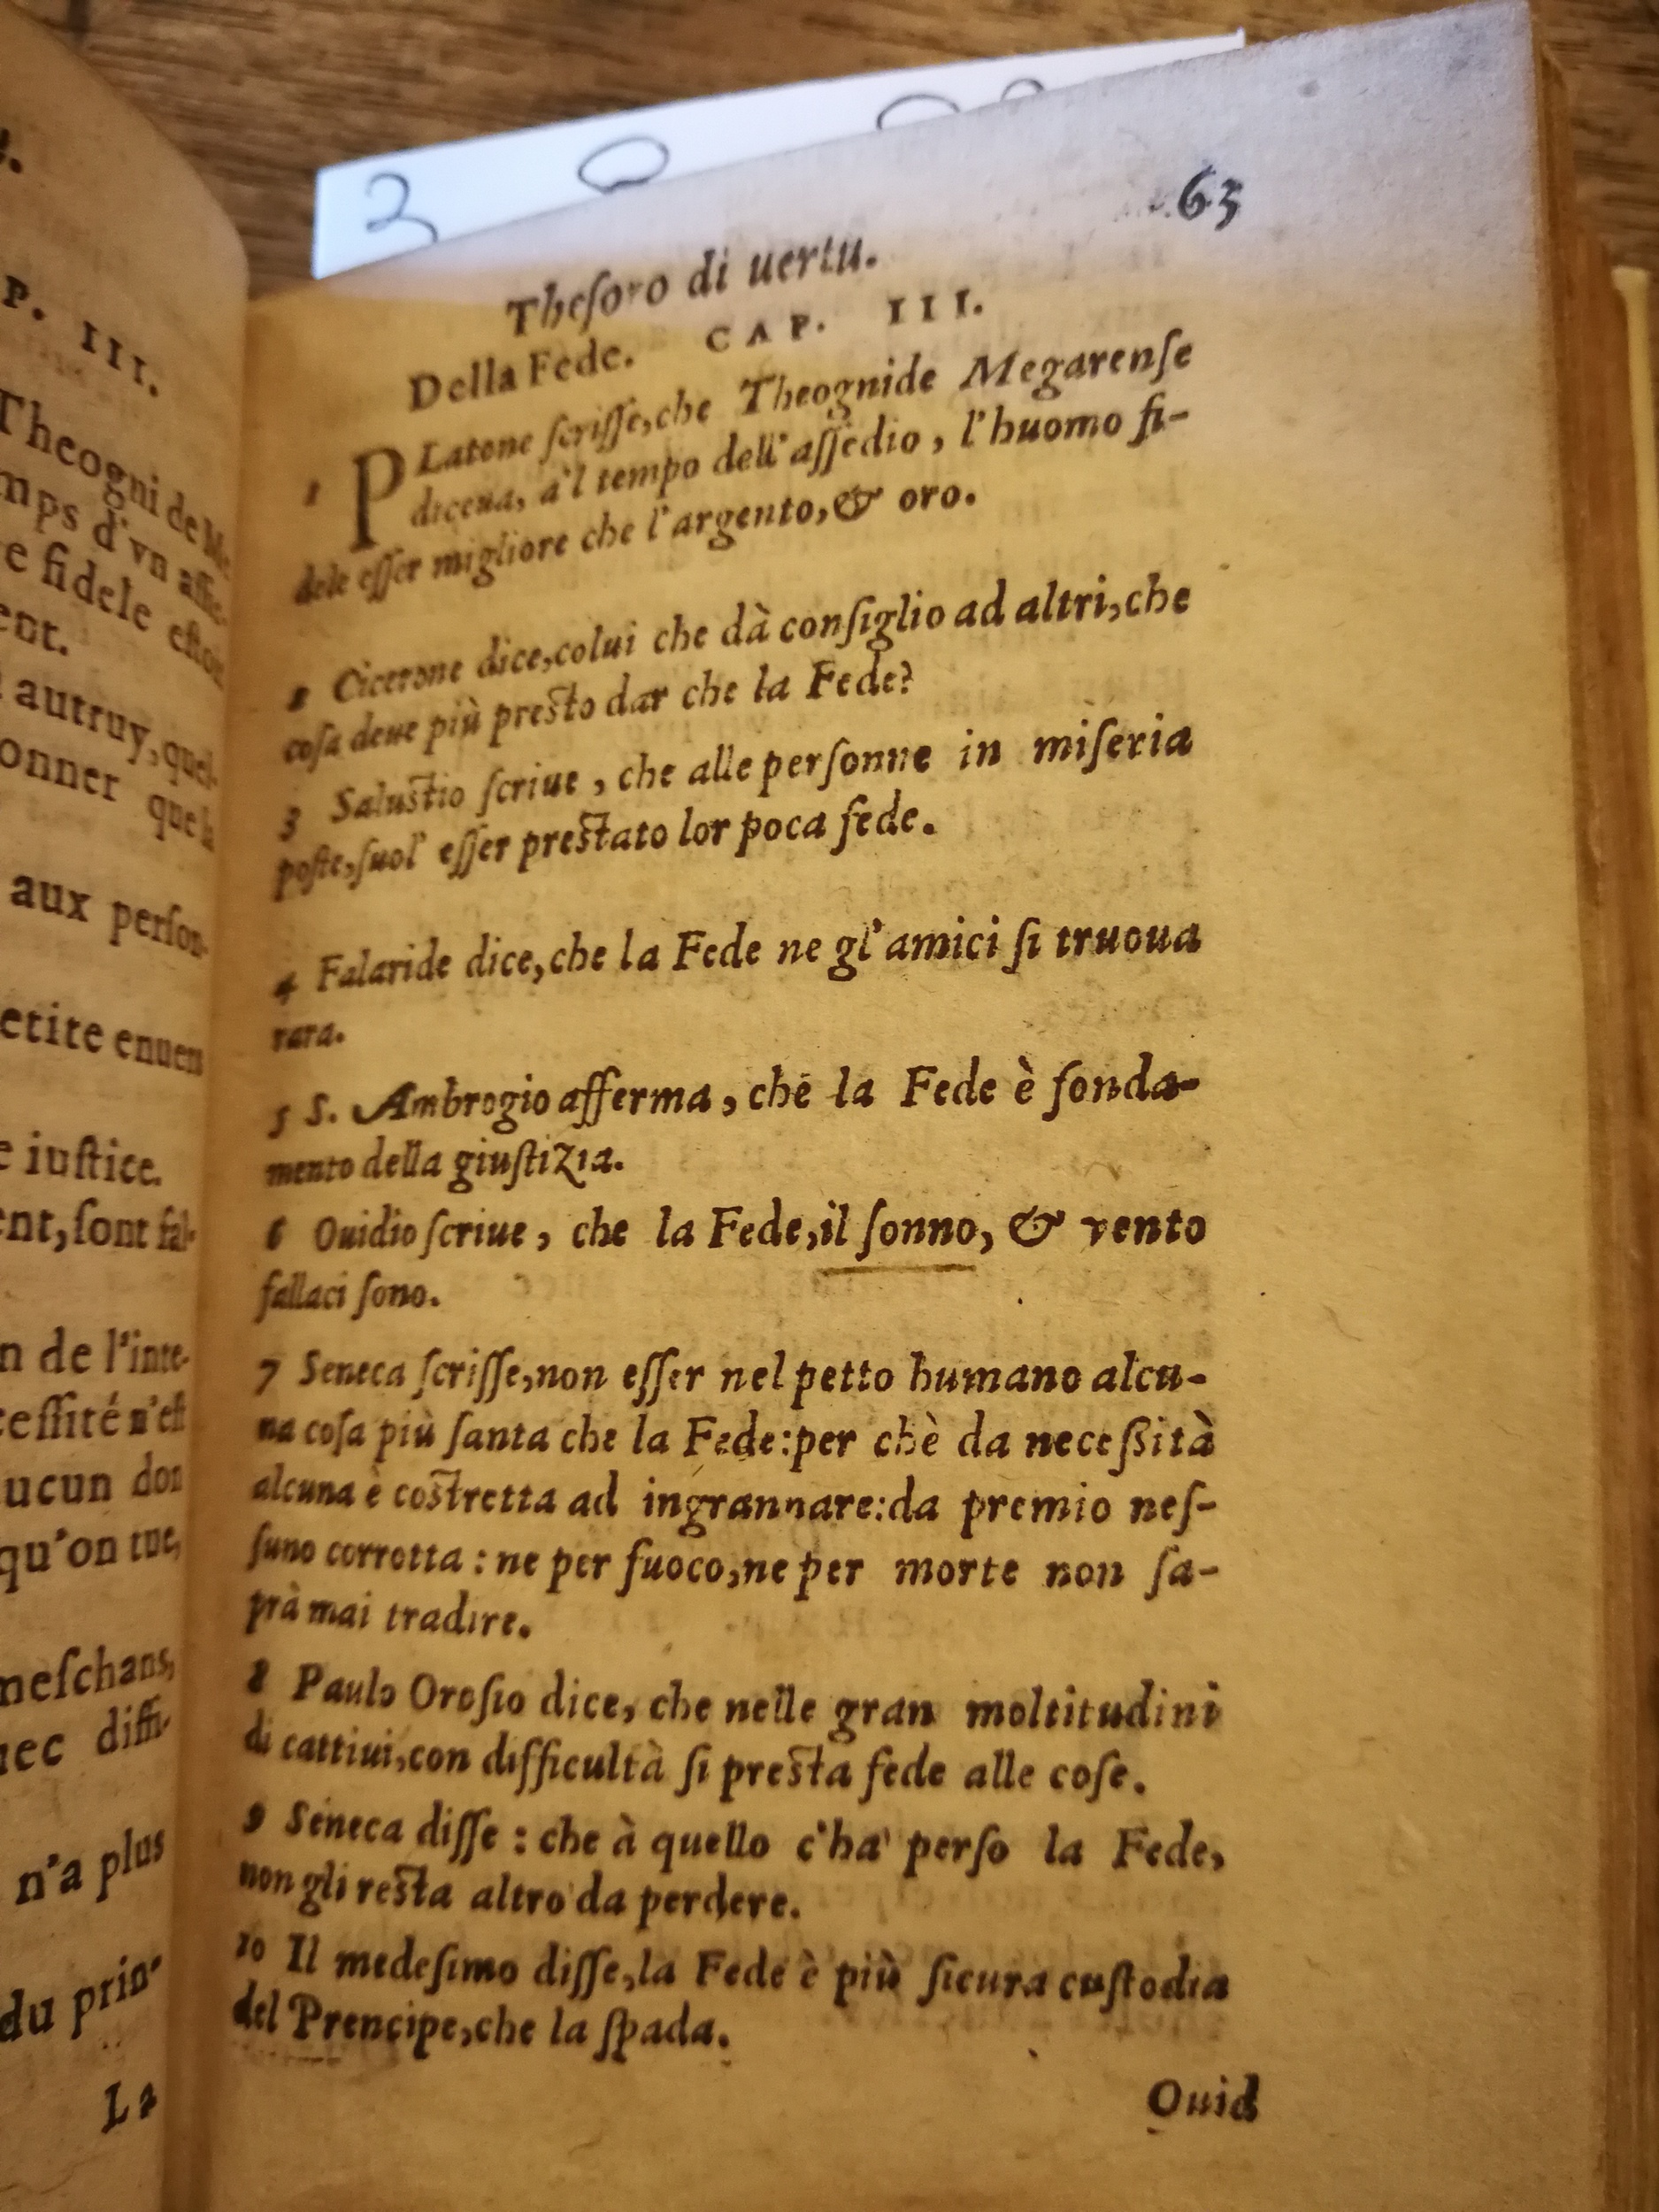 P. III.
Theogni de Me
mps d'vn assie-
e fidele estoi
ent.
autruy, quel-
onner que la
aux person-
etite enuers
e iustice.
ent, sont fal-
n de l'inte-
cessité n'est
ucun don
qu'on tue,
meschans,
uec diffi-
n'a plus
du prin-
La
2
63
Thesoro di uertu.
Della Fede. CAP. III.
1 PLatone scrisse, che Theognide Megarense
diceua, a'l tempo dell'assedio, l'huomo fi-
dele esser migliore che l'argento, & oro.
2 Cicerone dice, colui che dà consiglio ad altri, che
cosa deue più presto dar che la Fede?
3 Salustio scriue, che alle personne in miseria
poste, suol' esser prestato lor poca fede.
4 Falaride dice, che la Fede ne gl'amici si truoua
rara.
5 S. Ambrogio afferma, che la Fede è fonda-
mento della giustizia.
6 Ouidio scriue, che la Fede, il sonno, & vento
fallaci sono.
7 Seneca scrisse, non esser nel petto humano alcu-
na cosa più santa che la Fede: per chè da necessità
alcuna è costretta ad ingrannare: da premio nes-
suno corrotta: ne per fuoco, ne per morte non sa-
prà mai tradire.
8 Paulo Orosio dice, che nelle gran moltitudini
di cattiui, con difficultà si presta fede alle cose.
9 Seneca disse: che à quello c'ha' perso la Fede,
non gli resta altro da perdere.
10 Il medesimo disse, la Fede è più sicura custodia
del Prencipe, che la spada.
Ouid